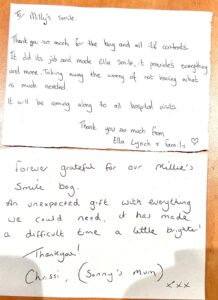 To Milly's Smile.
Thank you so much for the bag and all it's contents.
It did its job and made Ella smile, it provides everything
and more. Taking away the worry of not having what
is much needed.
It will be coming along to all hospital visits.
Thank you so much from,
Ella Lynch & family ♡
Forever grateful for our Millie's
Smile bag.
An unexpected gift with everything
we could need, it has made
a difficult time a little brighter!
Thankyou!
Chrissi, (Sonny's Mum)
x x x